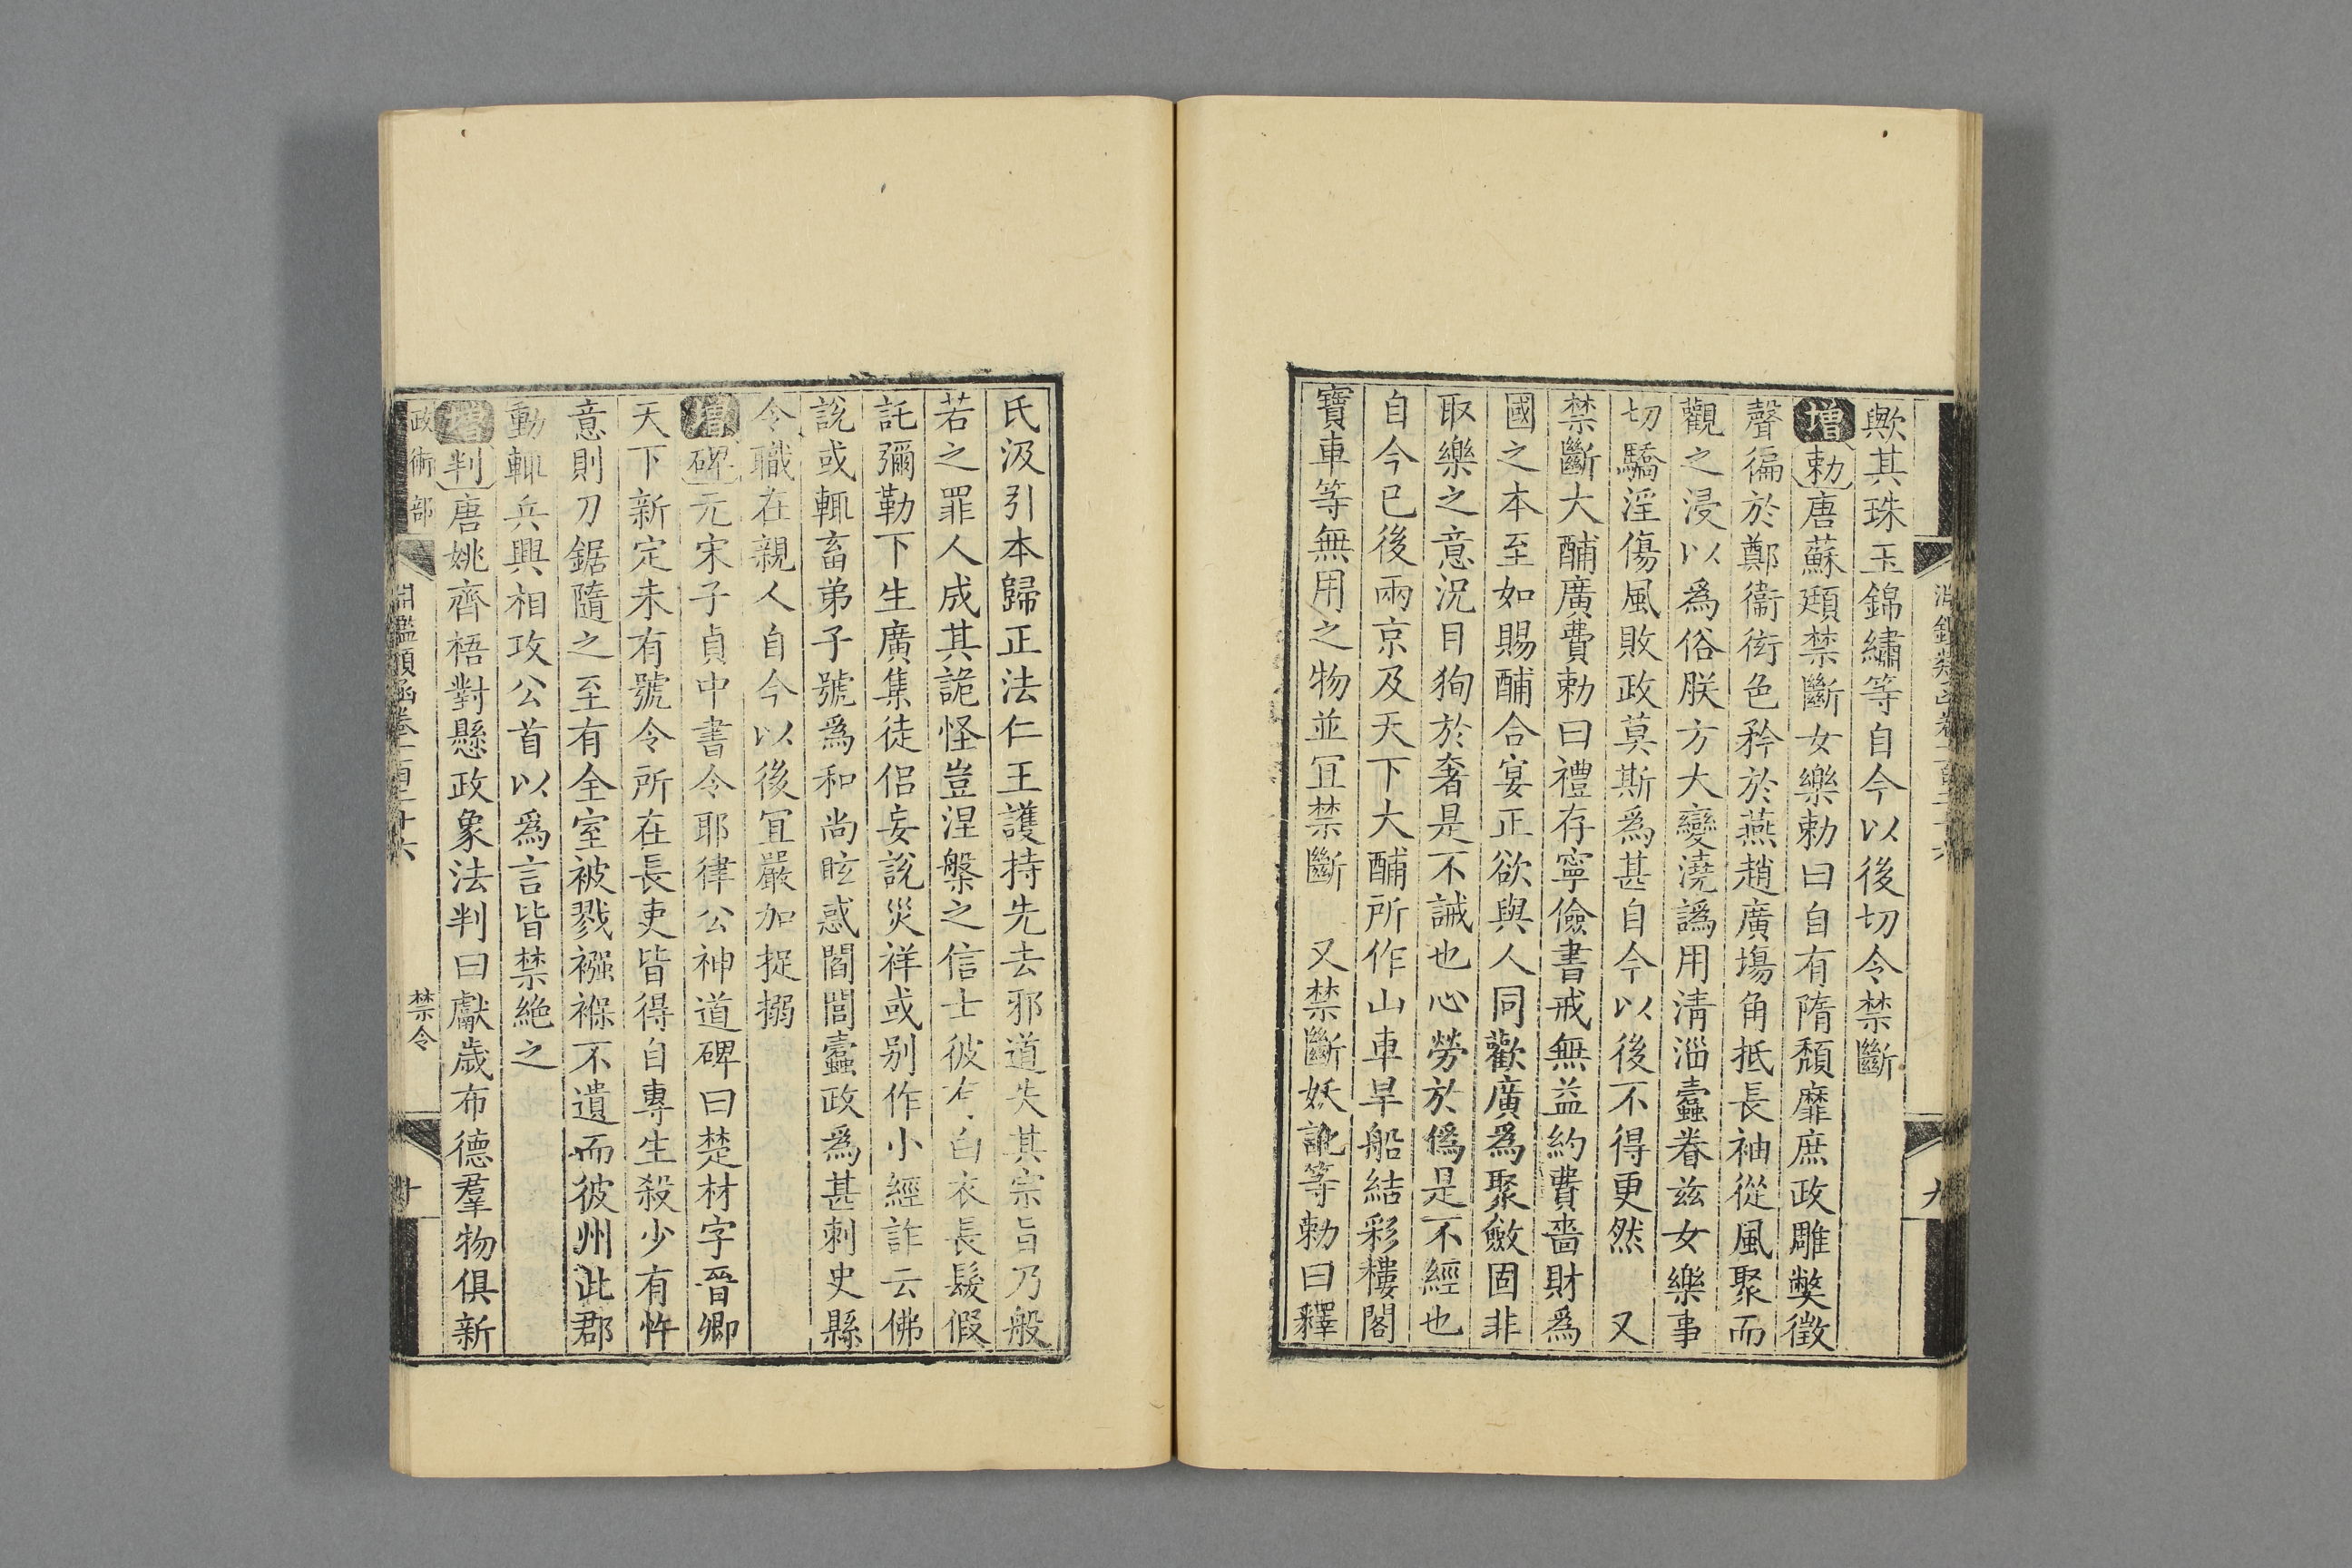 歟其珠玉錦繡等自今以後切令禁斷
增勅唐蘇頲禁斷女樂勅曰自有隋頹靡庶政雕弊徵
聲徧於鄭衞衒色矜於燕趙廣塲角抵長袖從風聚而
觀之浸以爲俗朕方大變澆譌用淸淄蠹眷兹女樂事
切驕淫傷風敗政莫斯爲甚自今以後不得更然　又
禁斷大酺廣費勅曰禮存寧儉書戒無益約費嗇財爲
國之本至如賜酺合宴正欲與人同歡廣爲聚斂固非
取樂之意況日狥於奢是不誡也心勞於僞是不經也
自今已後兩京及天下大酺所作山車旱船結彩樓閣
寶車等無用之物並宜禁斷　又禁斷妖訛等勅曰釋
氏汲引本歸正法仁王護持先去邪道失其宗旨乃般
若之罪人成其詭怪豈涅槃之信士彼有白衣長髮假
託彌勒下生廣集徒侶妄說災祥或别作小經詐云佛
說或輒畜弟子號爲和尚眩惑閭閻蠹政爲甚刺史縣
令職在親人自今以後宜嚴加捉搦
增碑元宋子貞中書令耶律公神道碑曰楚材字晉卿
天下新定未有號令所在長吏皆得自專生殺少有忤
意則刀鋸隨之至有全室被戮襁褓不遺而彼州此郡
動輒兵興相攻公首以爲言皆禁絶之
增判唐姚齊梧對懸政象法判曰獻歲布德羣物俱新
政術部
淵鑑類函卷一百二十六
禁令
十